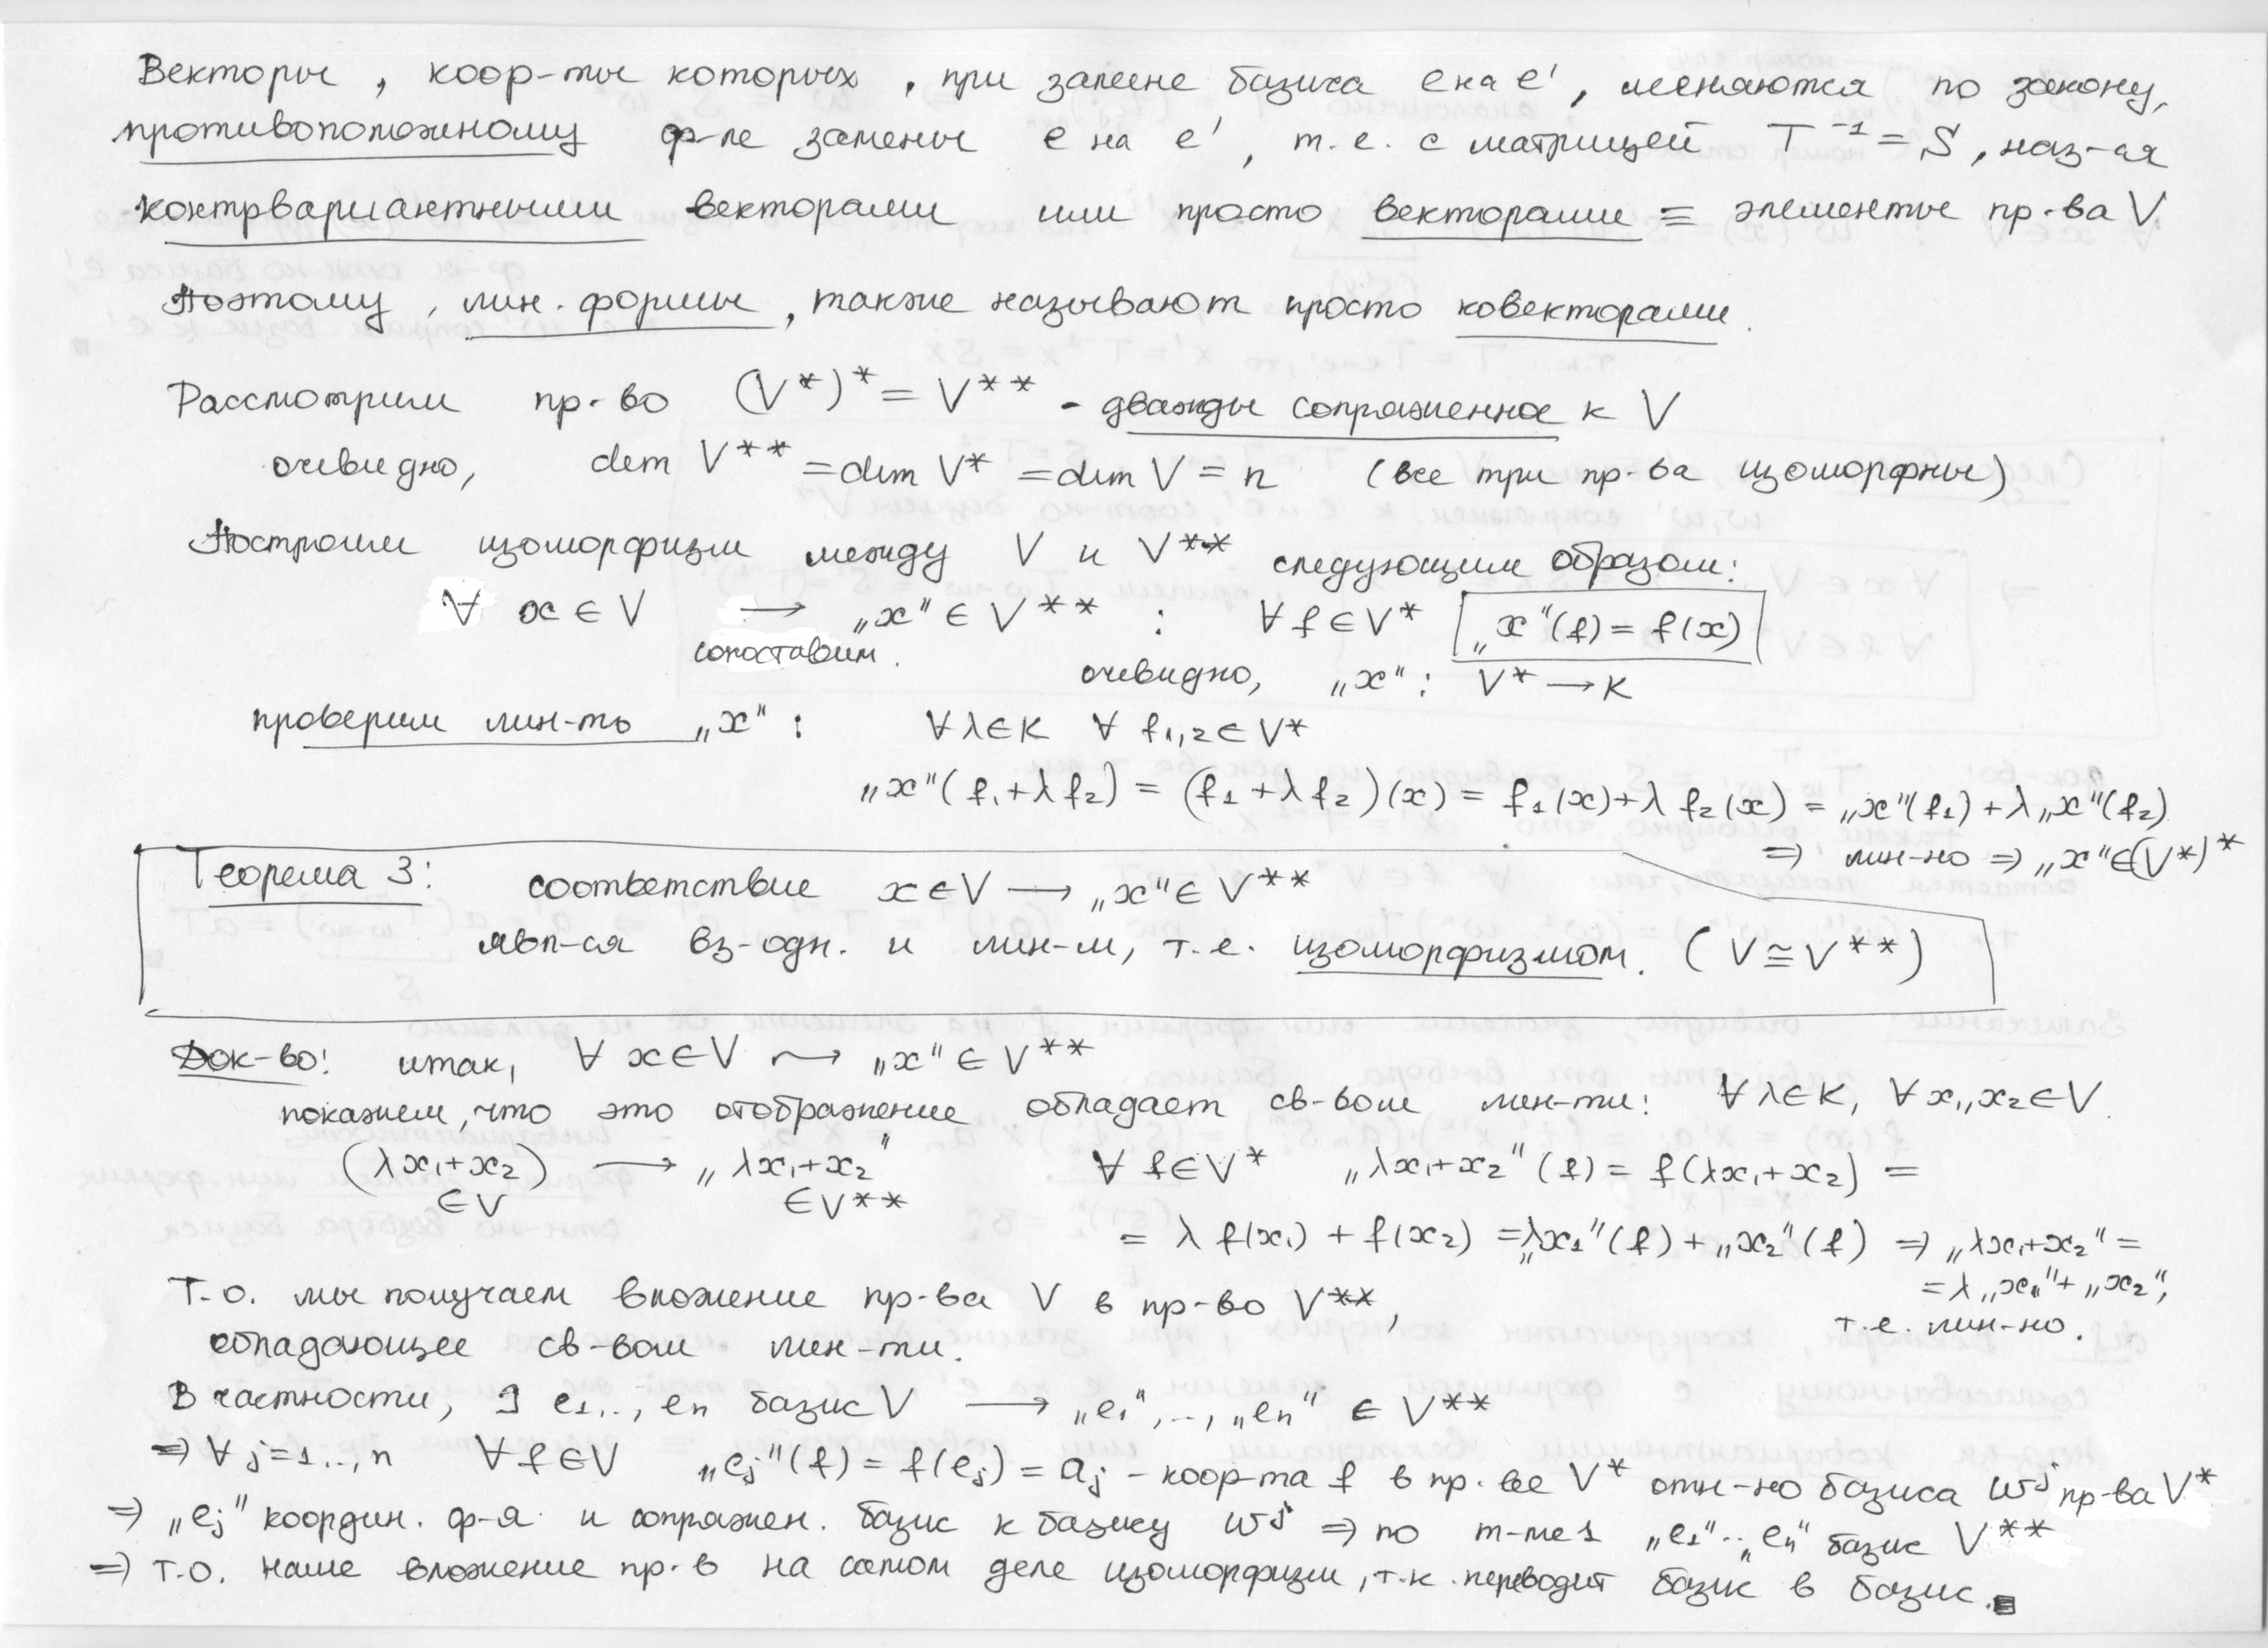 Векторы, коор-ты которых, при замене базиса e на e', меняются по закону,
противоположному ф-ле замены e на e', т.е. с матрицей T⁻¹ = S, наз-ся
контрвариантными векторами или просто векторами ≡ элементы пр-ва V
Поэтому, лин. формы, также называют просто ковекторами.
Рассмотрим пр-во (V*)* = V** - дважды сопряженное к V
очевидно, dim V** = dim V* = dim V = n (все три пр-ва изоморфны)
Построим изоморфизм между V и V** следующим образом:
∀ x ∈ V → „x" ∈ V** : ∀ f ∈ V* „x"(f) = f(x)
сопоставим.
очевидно, „x" : V* → K
проверим лин-ть „x" : ∀ λ ∈ K ∀ f₁,₂ ∈ V*
„x"(f₁ + λ f₂) = (f₁ + λ f₂)(x) = f₁(x) + λ f₂(x) = „x"(f₁) + λ „x"(f₂)
⇒ лин-но ⇒ „x" ∈ (V*)*
Теорема 3: соответствие x ∈ V → „x" ∈ V**
явл-ся вз-одн. и лин-м, т.е. изоморфизмом. (V ≅ V**)
Док-во: итак, ∀ x ∈ V ⇝ „x" ∈ V**
покажем, что это отображение обладает св-вом лин-ти: ∀ λ ∈ K, ∀ x₁, x₂ ∈ V.
(λx₁ + x₂) → „λx₁ + x₂" ∀ f ∈ V* „λx₁ + x₂"(f) = f(λx₁ + x₂) =
∈ V ∈ V**
= λ f(x₁) + f(x₂) = λ„x₁"(f) + „x₂"(f) ⇒ „λx₁ + x₂" =
= λ „x₁" + „x₂",
т.е. лин-но.
Т.о. мы получаем вложение пр-ва V в пр-во V**,
обладающее св-вом лин-ти.
В частности, ∃ e₁..., eₙ базис V → „e₁", ..., „eₙ" ∈ V**
⇒ ∀ j=1..., n ∀ f ∈ V „eⱼ"(f) = f(eⱼ) = aⱼ - коор-та f в пр-ве V* отн-но базиса wʲ пр-ва V*
⇒ „eⱼ" координ. ф-я и сопряжен. базис к базису wʲ ⇒ по т-ме 1 „e₁"..„eₙ" базис V**
⇒ Т.о. наше вложение пр-в на самом деле изоморфизм, т.к. переводит базис в базис.